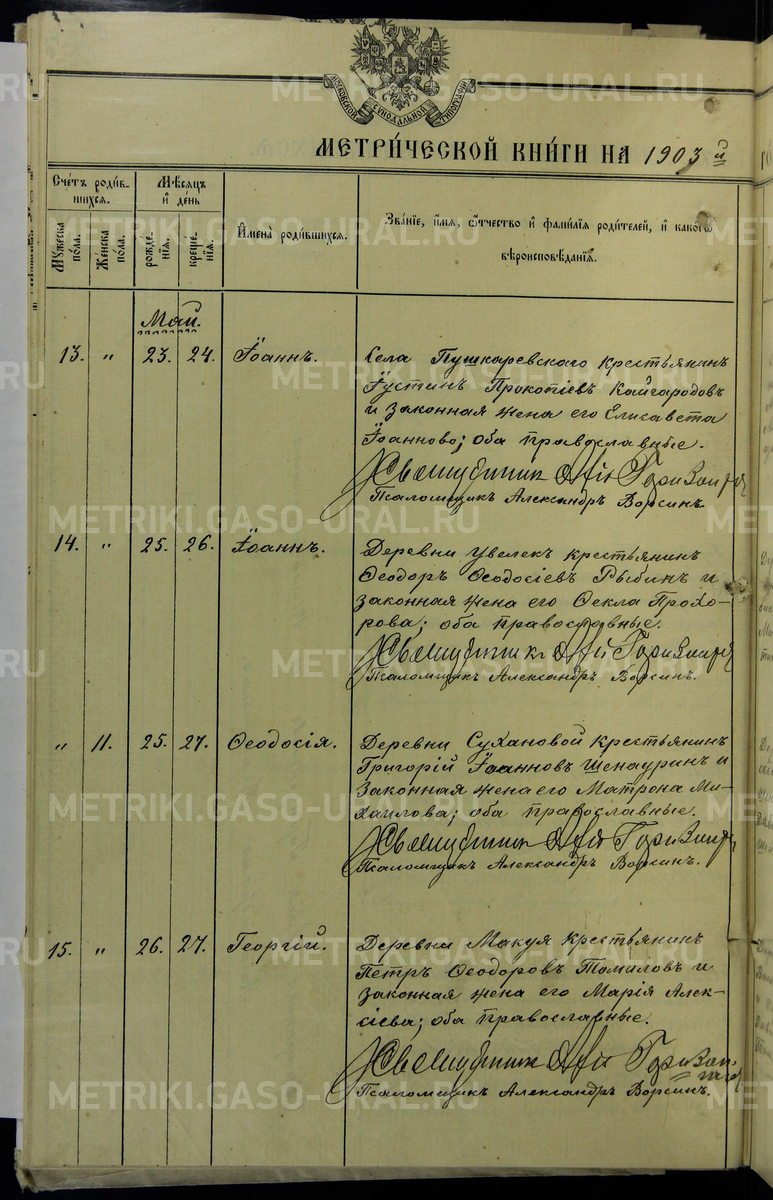 МОСКОВСКОЙ СѴНОДАЛЬНОЙ ТИПОГРАФІИ
МЕТРИ́ЧЕСКОЙ КНИ́ГИ НА 1903 й
Счетъ роди́в-
шихся.
Мѣсяцъ
и день
Имена̀ роди́вшихся.
Зва́нїе, и́мя, о́тчество и фами́лїя роди́телей, и како́го
вѣроисповѣ́данїя.
Мужеска
пола.
Женска
пола.
рожде́-
нїя.
креще́-
нїя.
Май.
13. „ 23. 24. Іоаннъ.
Села Пушкаревскаго крестьянинъ
Іустинъ Прокопіевъ Кайгородовъ
и законная жена его Елисавета
Іоаннова; оба православные.
Священникъ
Псаломщикъ Александръ Ворсинъ.
14. „ 25. 26. Іоаннъ.
Деревни Увелек крестьянинъ
Ѳеодоръ Ѳеодосіевъ Рыбинъ и
законная жена его Ѳекла Прохо-
рова; оба православные.
Священникъ
Псаломщикъ Александръ Ворсинъ.
„ 11. 25. 27. Ѳеодосія.
Деревни Сухановой крестьянинъ
Григорій Іоанновъ Шенауринъ и
законная жена его Матрона Ми-
хаилова; оба православные.
Священникъ
Псаломщикъ Александръ Ворсинъ.
15. „ 26. 27. Георгій.
Деревни Макуя крестьянинъ
Петръ Ѳеодоровъ Томиловъ и
законная жена его Марія Алек-
сіева; оба православные.
Священникъ
Псаломщикъ Александръ Ворсинъ.
METRIKI.GASO-URAL.RU